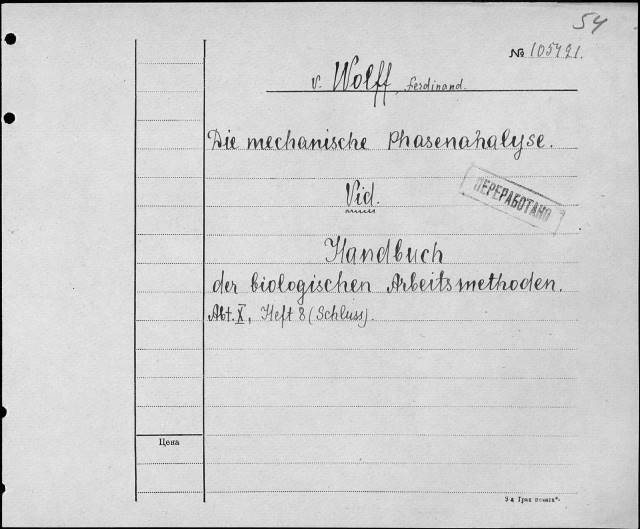 54
№ 105421.
v. Wolff, Ferdinand.
Die mechanische Phasenanalyse.
Vid.
ПЕРЕРАБОТАНО
Handbuch
der biologischen Arbeitsmethoden.
Abt. X, Heft 8 (Schluss).
Цена